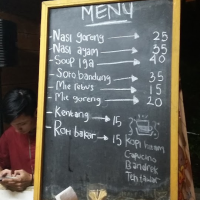 MENU
- Nasi goreng → 25
- Nasi ayam → 35
- Soup iga → 40
- Soto bandung → 35
- Mie rebus → 15
- Mie goreng → 20
- Kentang → 15
- Roti bakar → 15
Kopi hitam
Capucino
Bandrek
Teh tawar